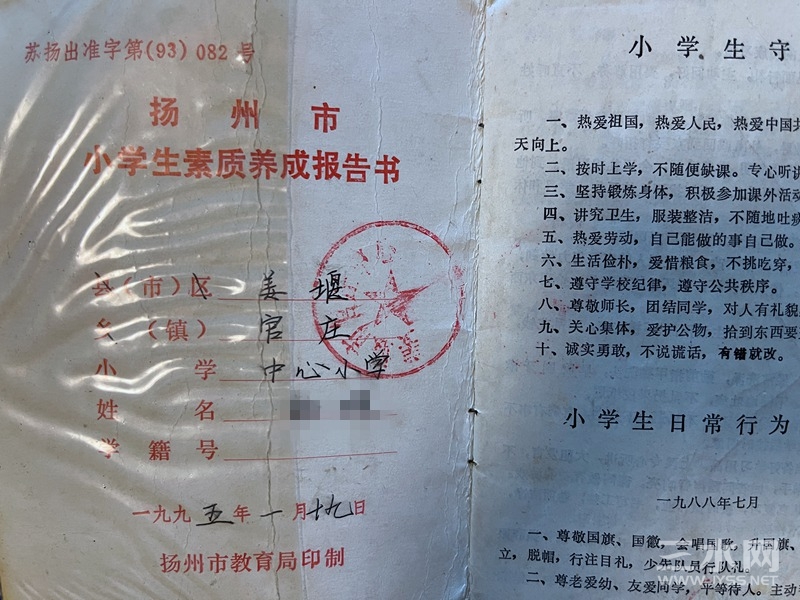 苏扬出准字第(93) 082 号
扬州市
小学生素质养成报告书
县(市)区 姜堰
乡(镇) 官庄
小学 中心小学
姓名
学籍号
一九九五年一月十九日
扬州市教育局印制
小学生守
一、热爱祖国，热爱人民，热爱中国共
天向上。
二、按时上学，不随便缺课。专心听讲
三、坚持锻炼身体，积极参加课外活动
四、讲究卫生，服装整洁，不随地吐痰
五、热爱劳动，自己能做的事自己做。
六、生活俭朴，爱惜粮食，不挑吃穿，
七、遵守学校纪律，遵守公共秩序。
八、尊敬师长，团结同学，对人有礼貌
九、关心集体，爱护公物，拾到东西要
十、诚实勇敢，不说谎话，有错就改。
小学生日常行为
一九八八年七月
一、尊敬国旗、国徽，会唱国歌，升国旗、
立，脱帽，行注目礼，少先队员行队礼。
二、尊老爱幼、友爱同学，平等待人。主动
三水网
WWW.JYSS.NET